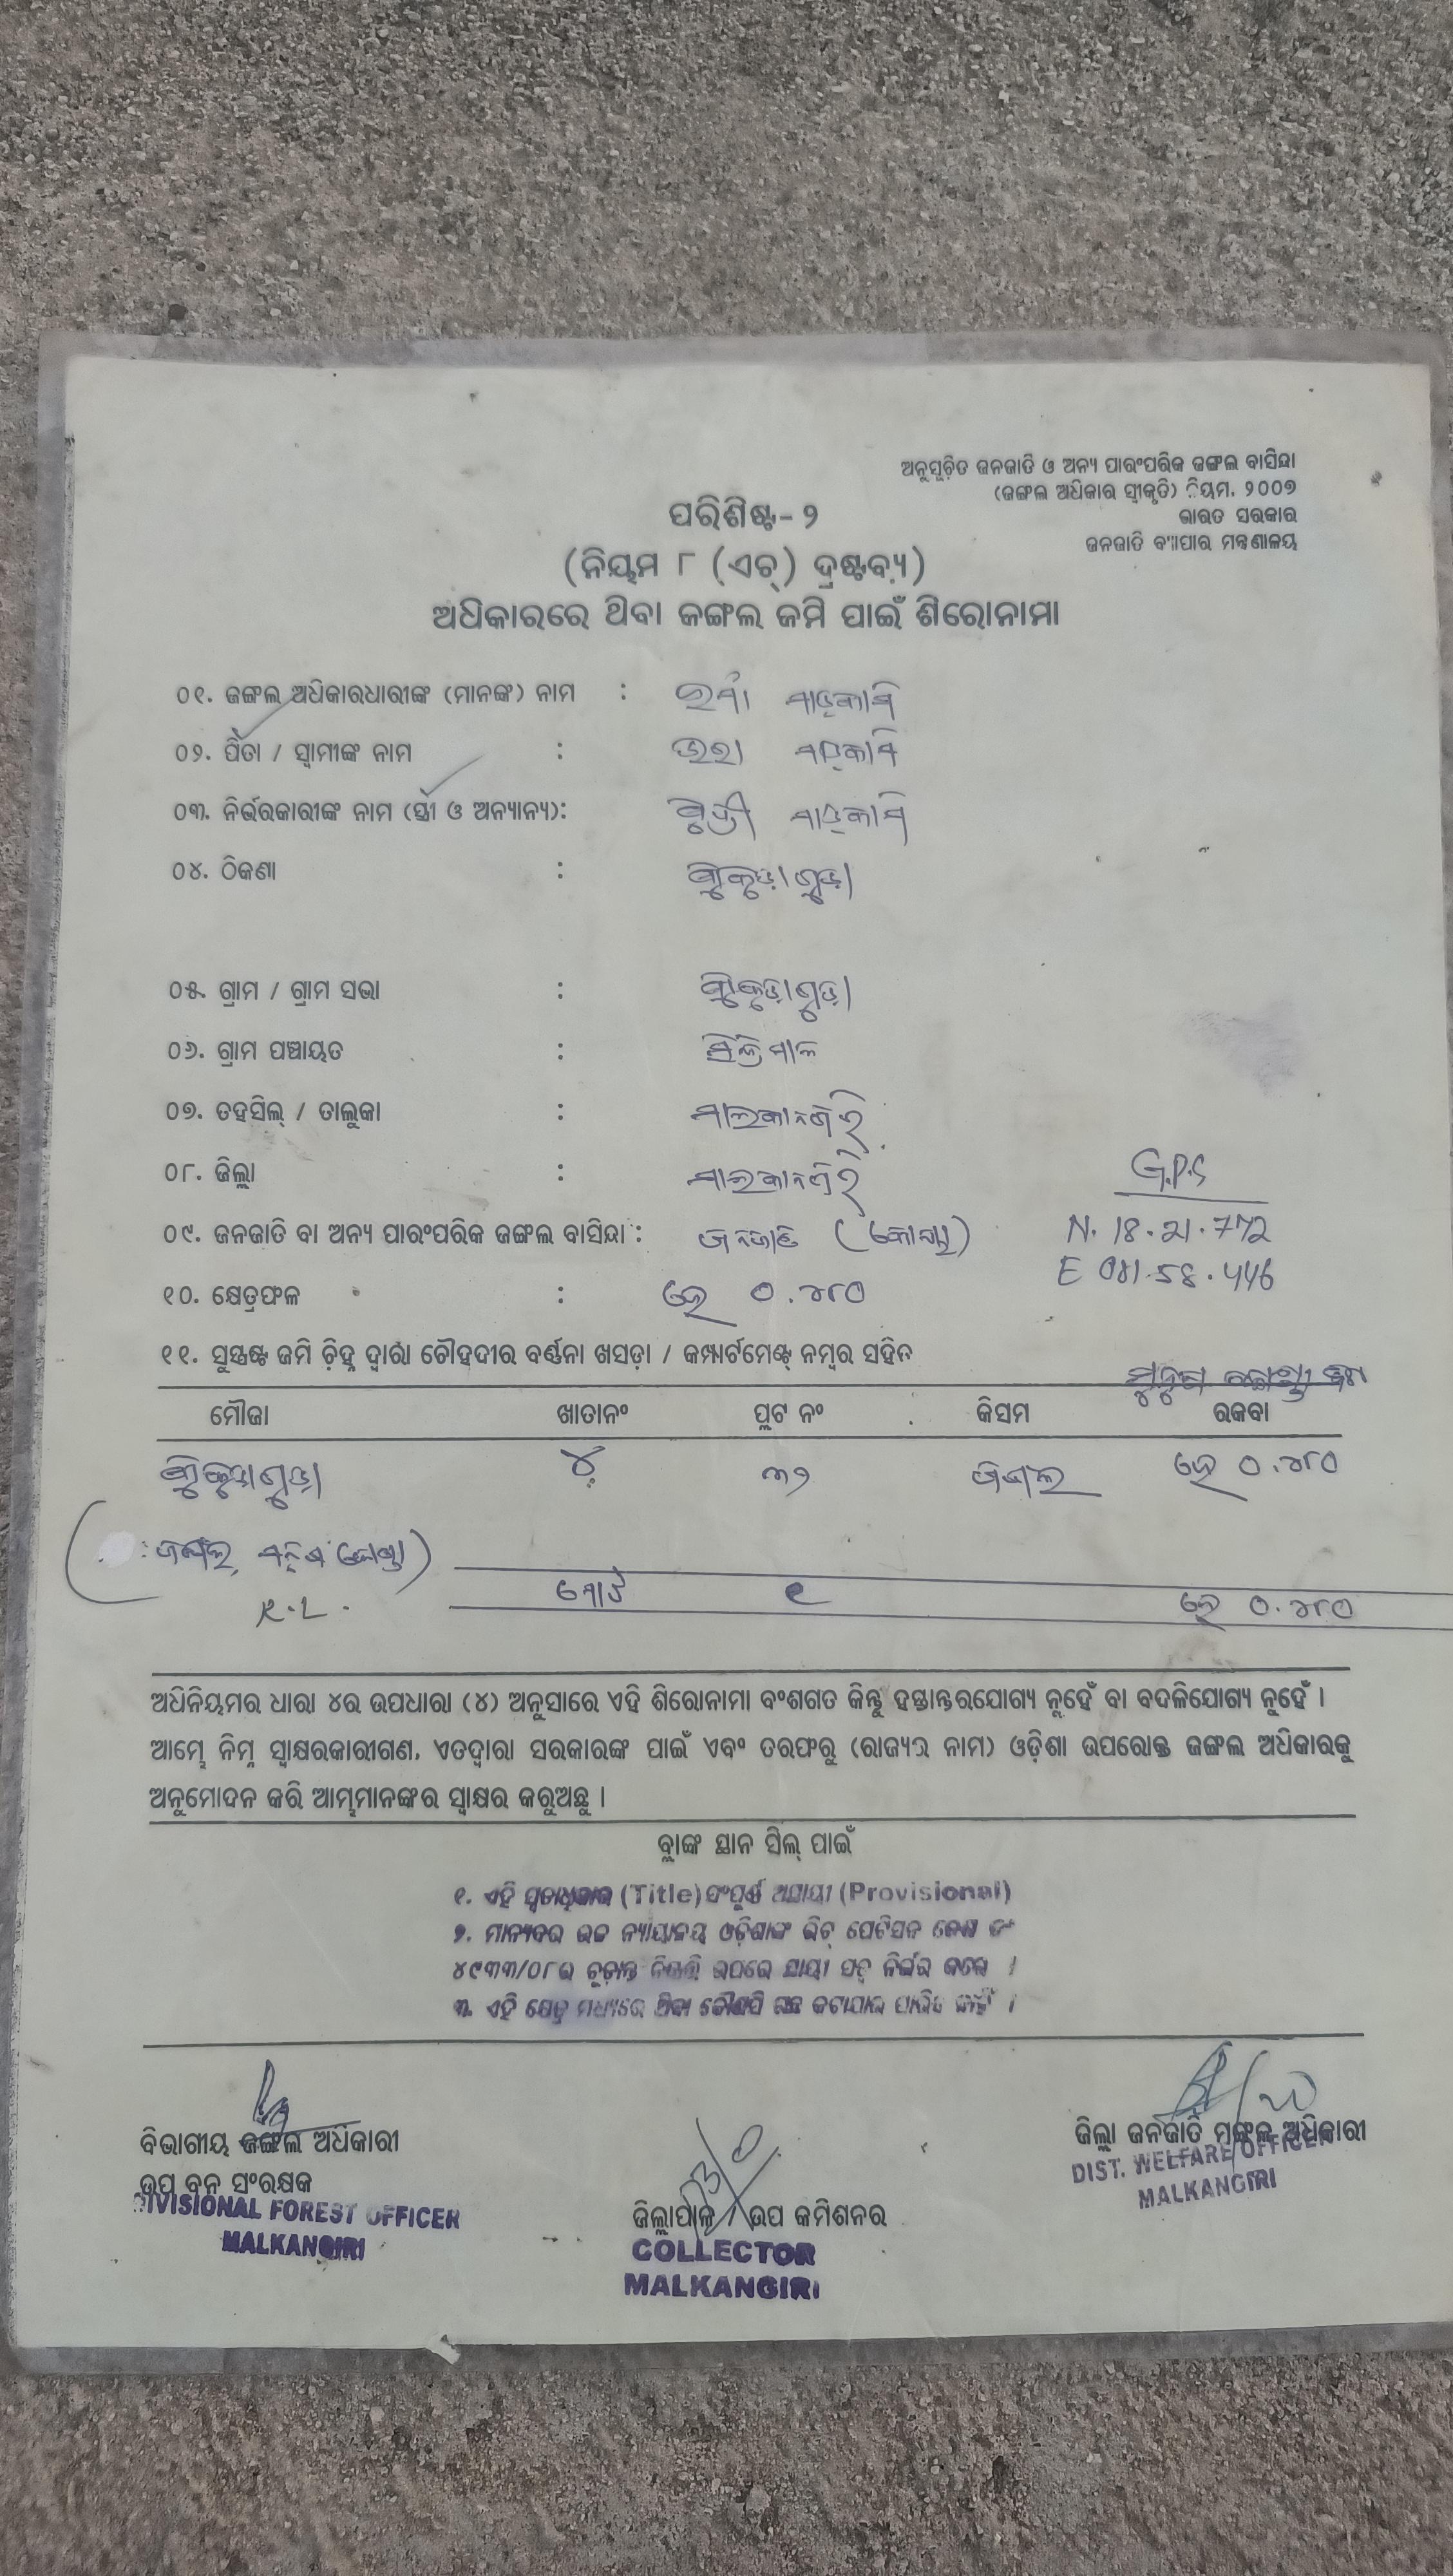 ଅନୁସୂଚିତ ଜନଜାତି ଓ ଅନ୍ୟ ପାରଂପରିକ ଜଙ୍ଗଲ ବାସିନ୍ଦା
(ଜଙ୍ଗଲ ଅଧିକାର ସ୍ୱୀକୃତି) ିୟମ, ୨୦୦୭
ଭାରତ ସରକାର
ଜନଜାତି ବ୍ୟାପାର ମନ୍ତ୍ରଣାଳୟ
ପରିଶିଷ୍ଟ- ୨
(ନିୟମ ୮ (ଏଚ୍) ଦ୍ରଷ୍ଟବ୍ୟ)
ଅଧିକାରରେ ଥିବା ଜଙ୍ଗଲ ଜମି ପାଇଁ ଶିରୋନାମା
୦୧. ଜଙ୍ଗଲ ଅଧିକାରଧାରୀଙ୍କ (ମାନଙ୍କ) ନାମ :
୦୨. ପିତା / ସ୍ୱାମୀଙ୍କ ନାମ :
୦୩. ନିର୍ଭରକାରୀଙ୍କ ନାମ (ସ୍ତ୍ରୀ ଓ ଅନ୍ୟାନ୍ୟ):
୦୪. ଠିକଣା :
୦୫. ଗ୍ରାମ / ଗ୍ରାମ ସଭା :
୦୬. ଗ୍ରାମ ପଞ୍ଚାୟତ :
୦୭. ତହସିଲ୍ / ତାଲୁକା : ମାଲକାନଗିରି
୦୮. ଜିଲ୍ଲା : ମାଲକାନଗିରି
G.P.S
୦୯. ଜନଜାତି ବା ଅନ୍ୟ ପାରଂପରିକ ଜଙ୍ଗଲ ବାସିନ୍ଦା : ଜନଜାତି (କୋୟା)
N. 18.21.772
E 081.58.446
୧୦. କ୍ଷେତ୍ରଫଳ : ହେ ୦.୪୮୦
୧୧. ସୁସ୍ପଷ୍ଟ ଜମି ଚିହ୍ନ ଦ୍ୱାରା ଚୌହଦୀର ବର୍ଣ୍ଣନା ଖସଡ଼ା / କମ୍ପାର୍ଟମେଣ୍ଟ୍ ନମ୍ବର ସହିତ
ମୌଜା ଖାତାନଂ ପ୍ଲଟ ନଂ କିସମ ରକବା
୪ ୩୨ ଜଙ୍ଗଲ ହେ ୦.୪୮୦
ମୋଟ ୧ ହେ ୦.୪୮୦
R.L.
ଅଧିନିୟମର ଧାରା ୪ର ଉପଧାରା (୪) ଅନୁସାରେ ଏହି ଶିରୋନାମା ବଂଶଗତ କିନ୍ତୁ ହସ୍ତାନ୍ତରଯୋଗ୍ୟ ନୁହେଁ ବା ବଦଳିଯୋଗ୍ୟ ନୁହେଁ ।
ଆମ୍ଭେ ନିମ୍ନ ସ୍ୱାକ୍ଷରକାରୀଗଣ, ଏତଦ୍ୱାରା ସରକାରଙ୍କ ପାଇଁ ଏବଂ ତରଫରୁ (ରାଜ୍ୟର ନାମ) ଓଡ଼ିଶା ଉପରୋକ୍ତ ଜଙ୍ଗଲ ଅଧିକାରକୁ
ଅନୁମୋଦନ କରି ଆମ୍ଭମାନଙ୍କର ସ୍ୱାକ୍ଷର କରୁଅଛୁ ।
ବ୍ଲାଙ୍କ ସ୍ଥାନ ସିଲ୍ ପାଇଁ
୧. ଏହି ସ୍ୱତ୍ତାଧିକାର (Title) ସଂପୂର୍ଣ୍ଣ ଅସ୍ଥାୟୀ (Provisional)
୨. ମାନ୍ୟବର ଉଚ୍ଚ ନ୍ୟାୟାଳୟ ଓଡ଼ିଶାଙ୍କ ରିଟ୍ ପେଟିସନ କେଶ ନଂ
୪୯୩୩/୦୮ର ଚୂଡ଼ାନ୍ତ ନିଷ୍ପତ୍ତି ଉପରେ ସ୍ଥାୟୀ ସତ୍ୱ ନିର୍ଭର କରେ ।
୩. ଏହି କ୍ଷେତ୍ର ମଧ୍ୟରେ ଥିବା କୌଣସି ଗଛ କଟାଯାଇ ପାରିବ ନାହିଁ ।
ବିଭାଗୀୟ ଜଙ୍ଗଲ ଅଧିକାରୀ
ଉପ ବନ ସଂରକ୍ଷକ
DIVISIONAL FOREST OFFICER
MALKANGIRI
ଜିଲ୍ଲାପାଳ / ଉପ କମିଶନର
COLLECTOR
MALKANGIRI
ଜିଲ୍ଲା ଜନଜାତି ମଙ୍ଗଳ ଅଧିକାରୀ
DIST. WELFARE OFFICER
MALKANGIRI